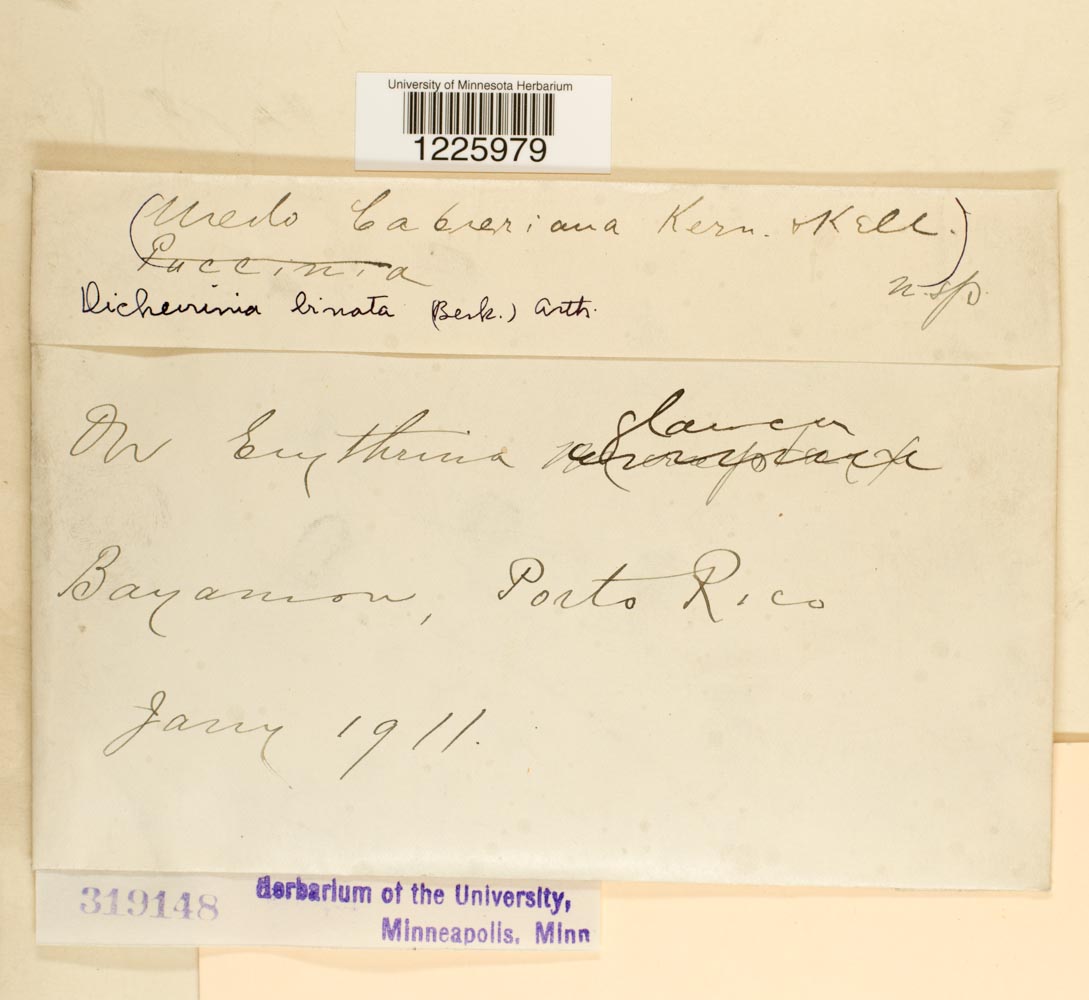 University of Minnesota Herbarium
1225979
(Uredo Cabreriana Kern. & Kell.)
Puccinia
n. sp.
Dicheirinia binata (Berk.) Arth.
glauca
On Erythrina
Bayamon, Porto Rico
Jany 1911.
319148 Herbarium of the University,
Minneapolis, Minn